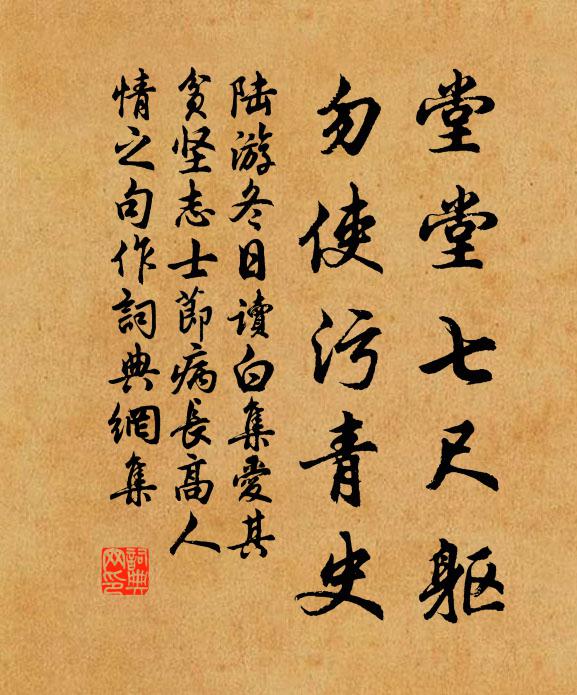 堂堂七尺躯
勿使污青史
陆游冬日读白集爱其
贫坚志士节病长高人
情之句作詞典網集
詞典网印